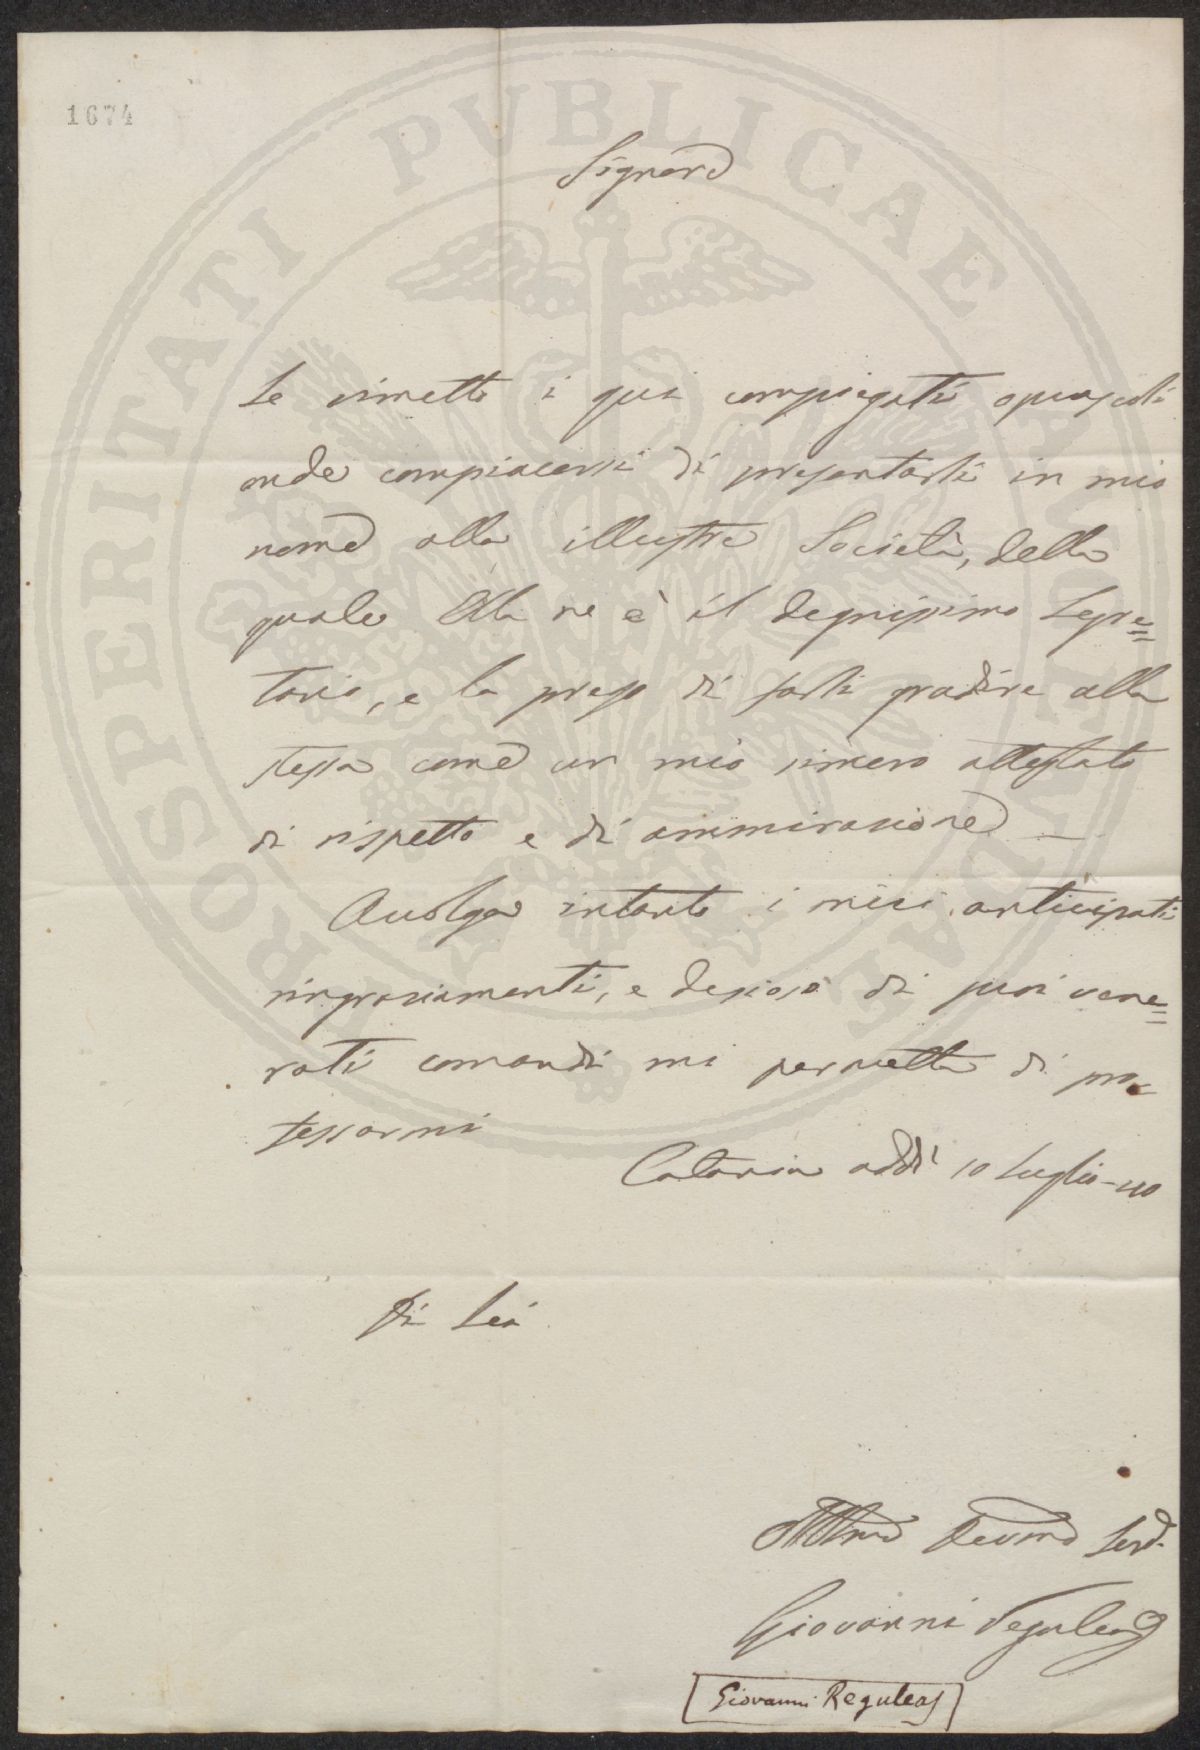 1674
PROSPERITATI PUBLICAE
Signore
Le rimetto i qui compiegati opuscoli
onde compiacersi di presentarli in mio
nome alla illustre Società, della
quale Ella ne è il degnissimo Segre=
tario, e la prego di farli gradire alla
stessa come un mio sincero attestato
di rispetto e di ammirazione —
Accolga intanto i miei anticipati
ringraziamenti, e desioso di suoi vene=
rati comandi mi permetta di pro
fessarmi
Catania addì 10 Luglio-40
Di Lei
Devmo Serv.
Giovanni Reguleas
Giovanni Reguleas